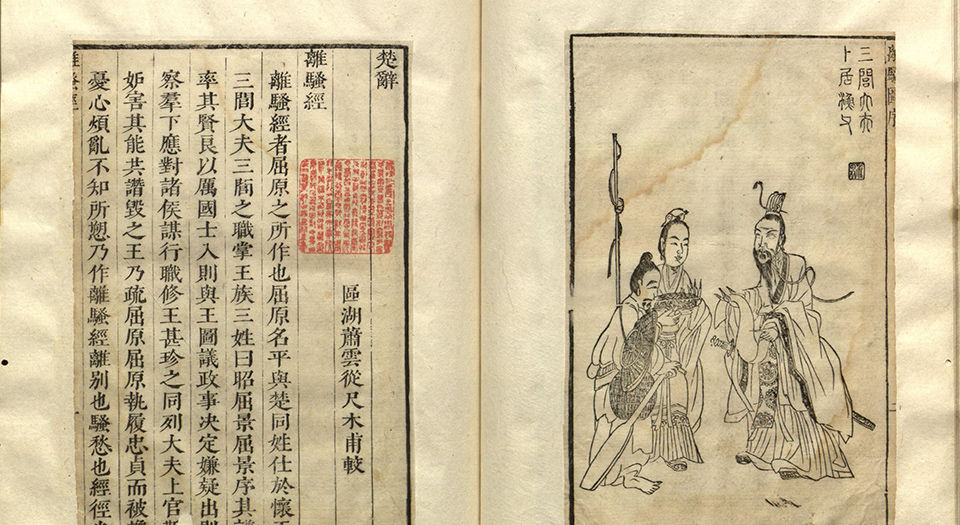 三閭大夫
卜居漁父
楚辭
區湖蕭雲從尺木甫較
離騷經
離騷經者屈原之所作也屈原名平與楚同姓仕於懷王
三閭大夫三閭之職掌王族三姓曰昭屈景屈景序其譜
率其賢良以厲國士入則與王圖議政事决定嫌疑出則
察羣下應對諸侯謀行職修王甚珍之同列大夫上官
妒害其能共譖毀之王乃疏屈原屈原執履忠貞而被讒
憂心煩亂不知所愬乃作離騷經離别也騷愁也經徑也
離騷經